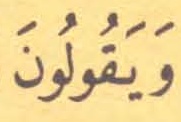 وَيَقُولُونَ